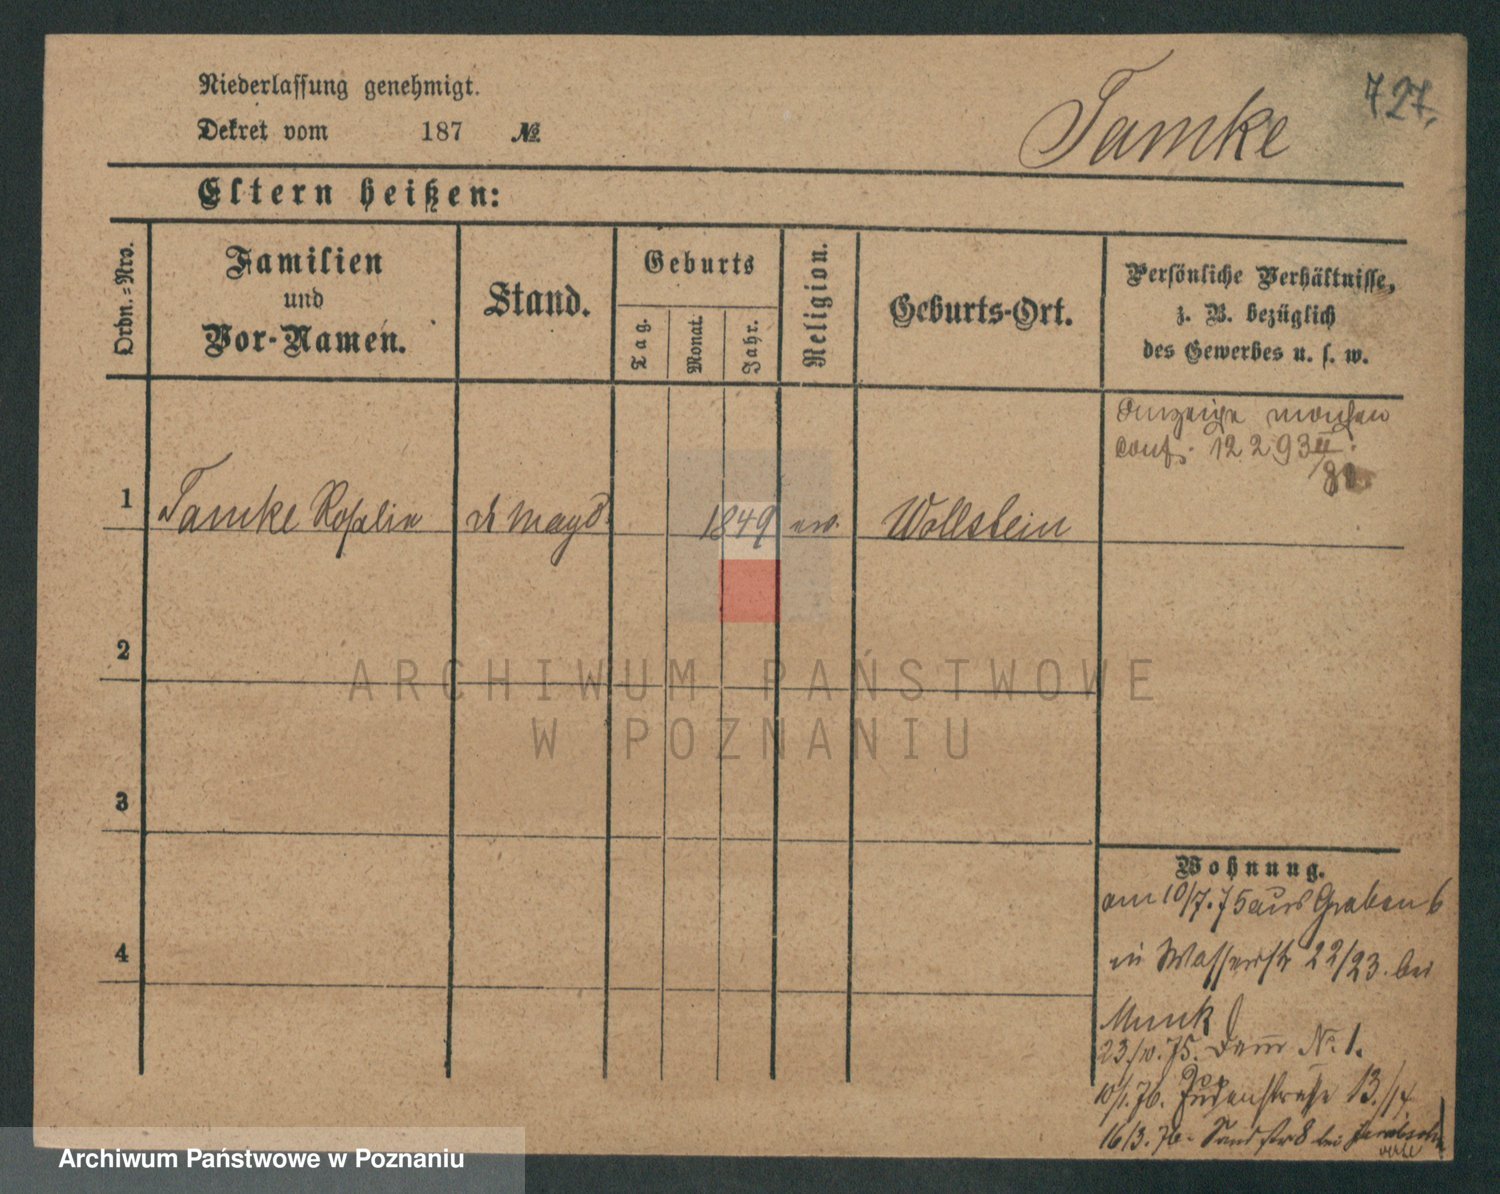 Niederlassung genehmigt.
727.
Dekret vom 187 №
Tamke
Eltern heißen:
Ordn.=Nro.
Familien
und
Vor-Namen.
Stand.
Geburts
Tag.
Monat.
Jahr.
Religion.
Geburts-Ort.
Persönliche Verhältnisse,
z. B. bezüglich
des Gewerbes u. s. w.
Anzeige
conf. 12293
1 Tamke Rosalie d Magd 1849 ev. Wollstein
2
ARCHIWUM PAŃSTWOWE
W POZNANIU
3
Wohnung.
am 10/7. 75 aus Graben 6
4
in Wasserstr 22/23. bei
Munk
23/10. 75. Damm No 1.
10/1. 76. Judenstraße 13./14
16/3. 76. Sandstr 8 bei
Archiwum Państwowe w Poznaniu